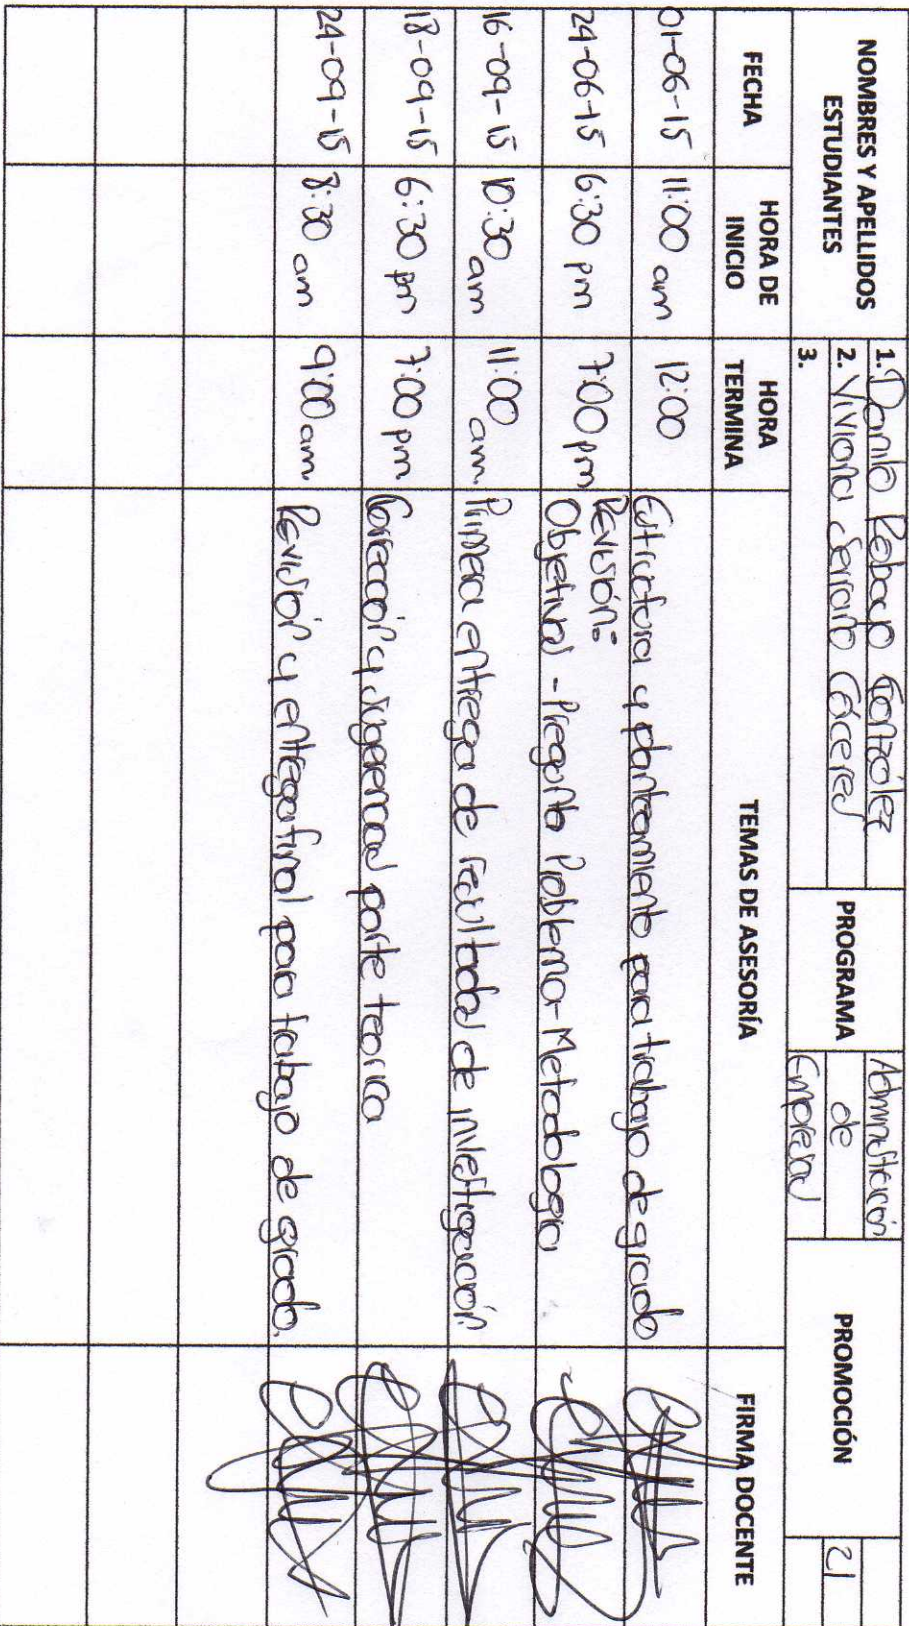 NOMBRES Y APELLIDOS ESTUDIANTES
1. Danilo Rebage González
2. Viviana Serrano Cáceres
3.
PROGRAMA
Administración
de
Empresas
PROMOCIÓN
21
FECHA HORA DE INICIO HORA TERMINA TEMAS DE ASESORÍA FIRMA DOCENTE
01-06-15 11:00 am 12:00 Estructura y planteamiento para trabajo de grado
24-06-15 6:30 pm 7:00 pm Revisión:
Objetivos - Pregunta Problema - Metodologia
16-09-15 10:30 am 11:00 am. Primera entrega de resultados de investigación
18-09-15 6:30 pm 7:00 pm Corrección y sugerencias parte teorica
24-09-15 8:30 am 9:00 am. Revisión y entrega final para trabajo de grado.